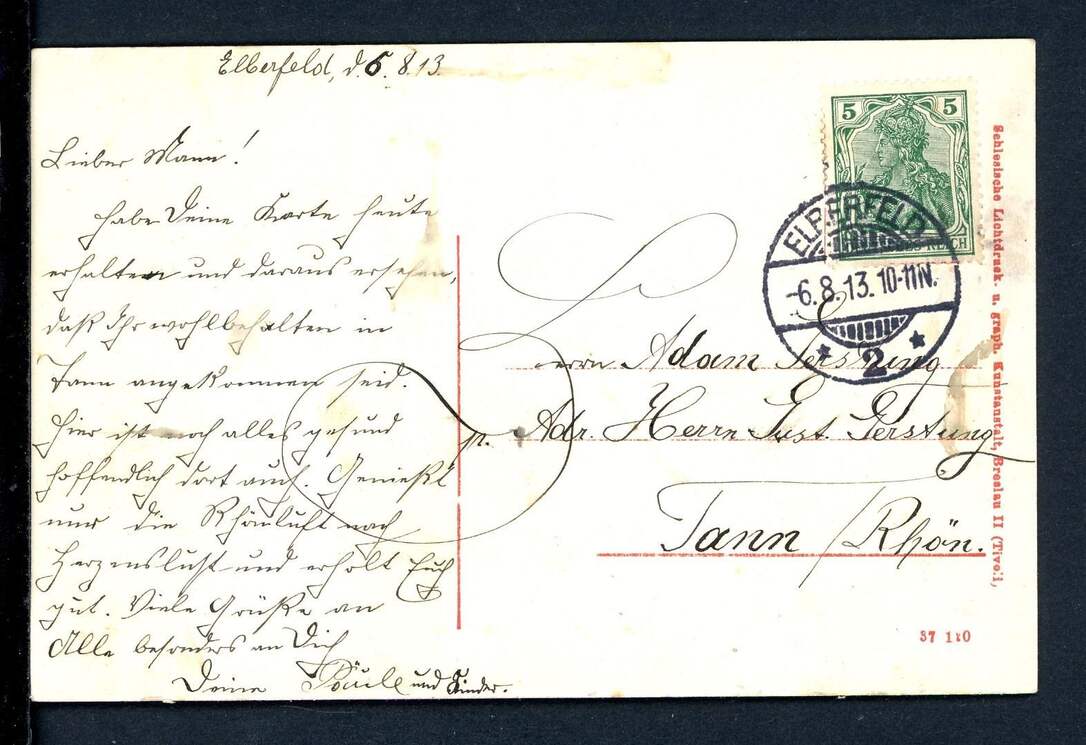 Elberfeld, d. 6. 8. 13.
Lieber Mann!
habe Deine Karte heute
erhalten und daraus ersehen,
daß Ihr wohlbehalten in
Tann angekommen seid.
Hier ist noch alles gesund
hoffendlich dort auch. Genießt
nur die Rhönluft nach
Herzenslust und erholt Euch
gut. Viele Grüße an
Alle besonders an Dich
Deine und Kinder.
5 5
REICH
ELBERFELD
-6.8.13.10-11N.
* 2 *
Herrn Adam Gerstung
p. Adr. Herrn Gust. Gerstung
Tann /Rhön.
Schlesische Lichtdruck- u. graph. Kunstanstalt, Breslau II (Tivoli,
37 110